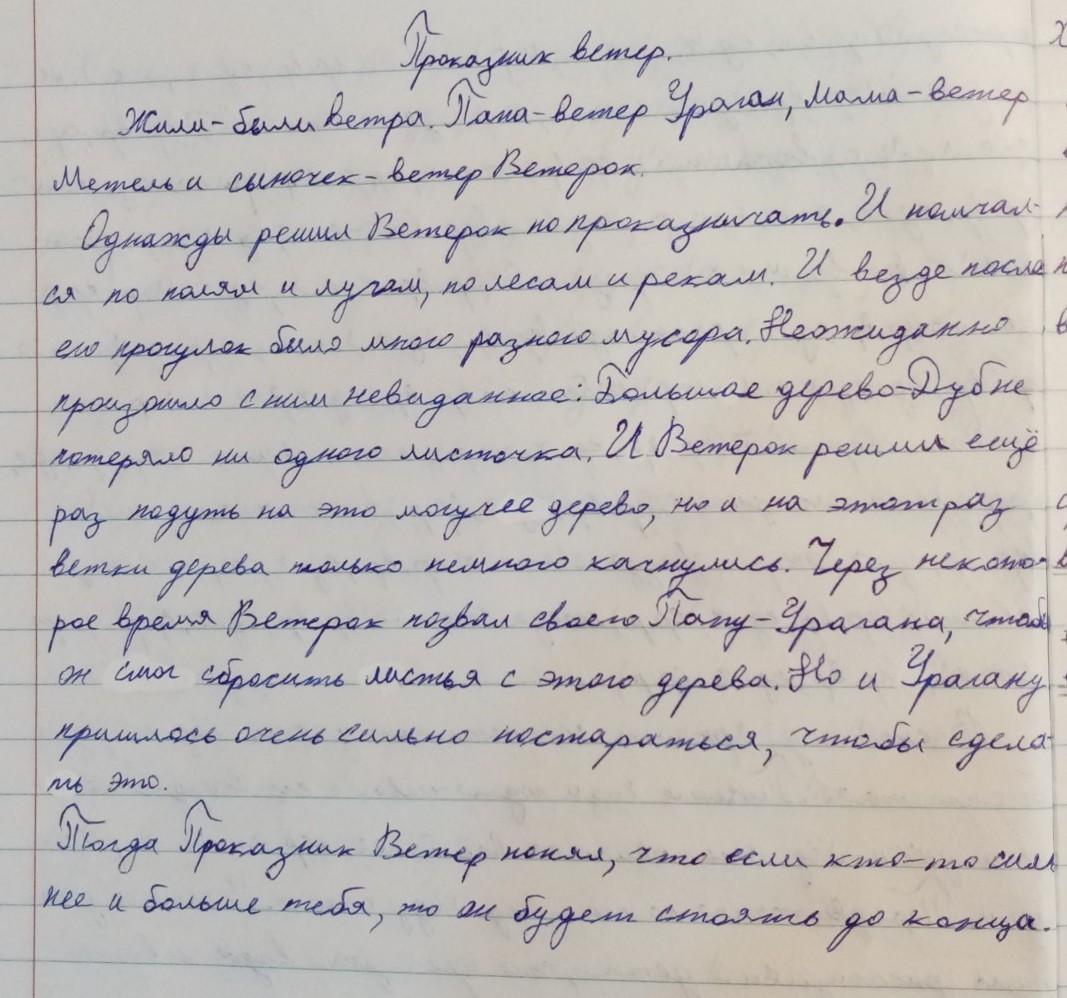 Проказник ветер.
Жили-были ветра. Папа-ветер Ураган, Мама-ветер
Метель и сыночек-ветер Ветерок.
Однажды решил Ветерок попроказничать. И помчал-
ся по полям и лугам, по лесам и рекам. И везде после
его прогулок было много разного мусора. Неожиданно
произошло с ним невиданное: Большое дерево-Дуб не
потеряло ни одного листочка. И Ветерок решил ещё
раз подуть на это могучее дерево, но и на этот раз
ветки дерева только немного качнулись. Через некото-
рое время Ветерок позвал своего Папу-Урагана, чтобы
он смог сбросить листья с этого дерева. Но и Урагану
пришлось очень сильно постараться, чтобы сдела-
ть это.
Тогда Проказник Ветер понял, что если кто-то силь
нее и больше тебя, то он будет стоять до конца.